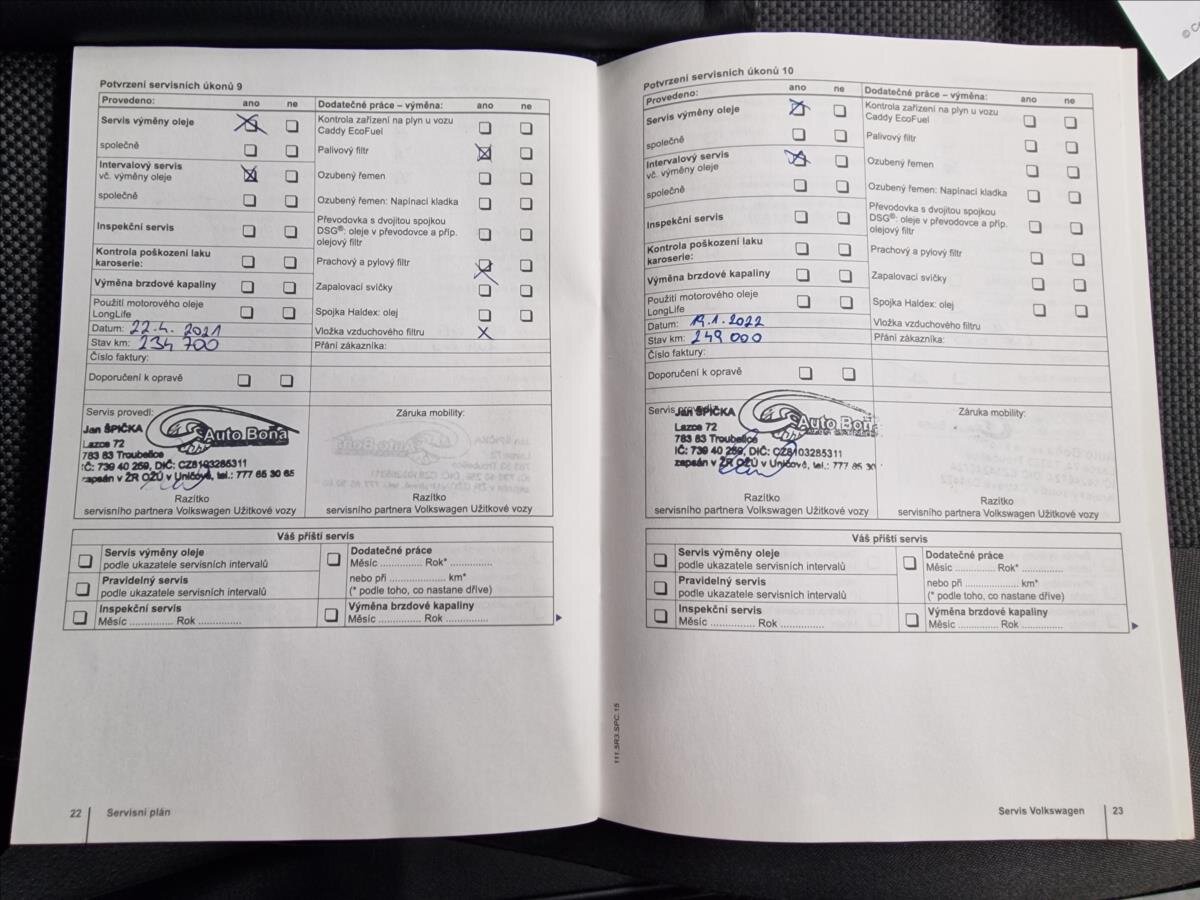 © C
Potvrzení servisních úkonů 9
Provedeno: ano ne Dodatečné práce – výměna: ano ne
Servis výměny oleje
Kontrola zařízení na plyn u vozu
Caddy EcoFuel
společně
Palivový filtr
Intervalový servis
vč. výměny oleje
Ozubený řemen
společně
Ozubený řemen: Napínací kladka
Inspekční servis
Převodovka s dvojitou spojkou
DSG®: oleje v převodovce a příp.
olejový filtr
Kontrola poškození laku
karoserie:
Prachový a pylový filtr
Výměna brzdové kapaliny
Zapalovací svíčky
Použití motorového oleje
LongLife
Spojka Haldex: olej
Datum: 22.4. 2021
Vložka vzduchového filtru X
Stav km: 234 700
Přání zákazníka:
Číslo faktury:
Doporučení k opravě
Servis provedl:
Záruka mobility:
Jan ŠPIČKA
Auto Boňa
Lazce 72
783 83 Troubelice
IČ: 739 40 259, DIČ: CZ8103285311
zapsán v ŽR OŽÚ v Uničově, tel.: 777 65 30 65
Razítko
servisního partnera Volkswagen Užitkové vozy
Razítko
servisního partnera Volkswagen Užitkové vozy
Váš příští servis
Servis výměny oleje
podle ukazatele servisních intervalů
Pravidelný servis
podle ukazatele servisních intervalů
Inspekční servis
Měsíc .............. Rok ..............
Dodatečné práce
Měsíc .............. Rok* ..............
nebo při .................. km*
(* podle toho, co nastane dříve)
Výměna brzdové kapaliny
Měsíc .............. Rok ..............
22 Servisní plán
Potvrzení servisních úkonů 10
Provedeno: ano ne Dodatečné práce – výměna: ano ne
Servis výměny oleje
Kontrola zařízení na plyn u vozu
Caddy EcoFuel
společně
Palivový filtr
Intervalový servis
vč. výměny oleje
Ozubený řemen
společně
Ozubený řemen: Napínací kladka
Inspekční servis
Převodovka s dvojitou spojkou
DSG®: oleje v převodovce a příp.
olejový filtr
Kontrola poškození laku
karoserie:
Prachový a pylový filtr
Výměna brzdové kapaliny
Zapalovací svíčky
Použití motorového oleje
LongLife
Spojka Haldex: olej
Datum: 19.1.2022
Vložka vzduchového filtru
Stav km: 249 000
Přání zákazníka:
Číslo faktury:
Doporučení k opravě
Servis provedl:
Záruka mobility:
Jan ŠPIČKA
Auto Boňa
Lazce 72
783 83 Troubelice
IČ: 739 40 259, DIČ: CZ8103285311
zapsán v ŽR OŽÚ v Uničově, tel.: 777 65 30
Razítko
servisního partnera Volkswagen Užitkové vozy
Razítko
servisního partnera Volkswagen Užitkové vozy
Váš příští servis
Servis výměny oleje
podle ukazatele servisních intervalů
Pravidelný servis
podle ukazatele servisních intervalů
Inspekční servis
Měsíc .............. Rok ..............
Dodatečné práce
Měsíc .............. Rok* ..............
nebo při .................. km*
(* podle toho, co nastane dříve)
Výměna brzdové kapaliny
Měsíc .............. Rok ..............
111.5R3.SPC.15
Servis Volkswagen 23